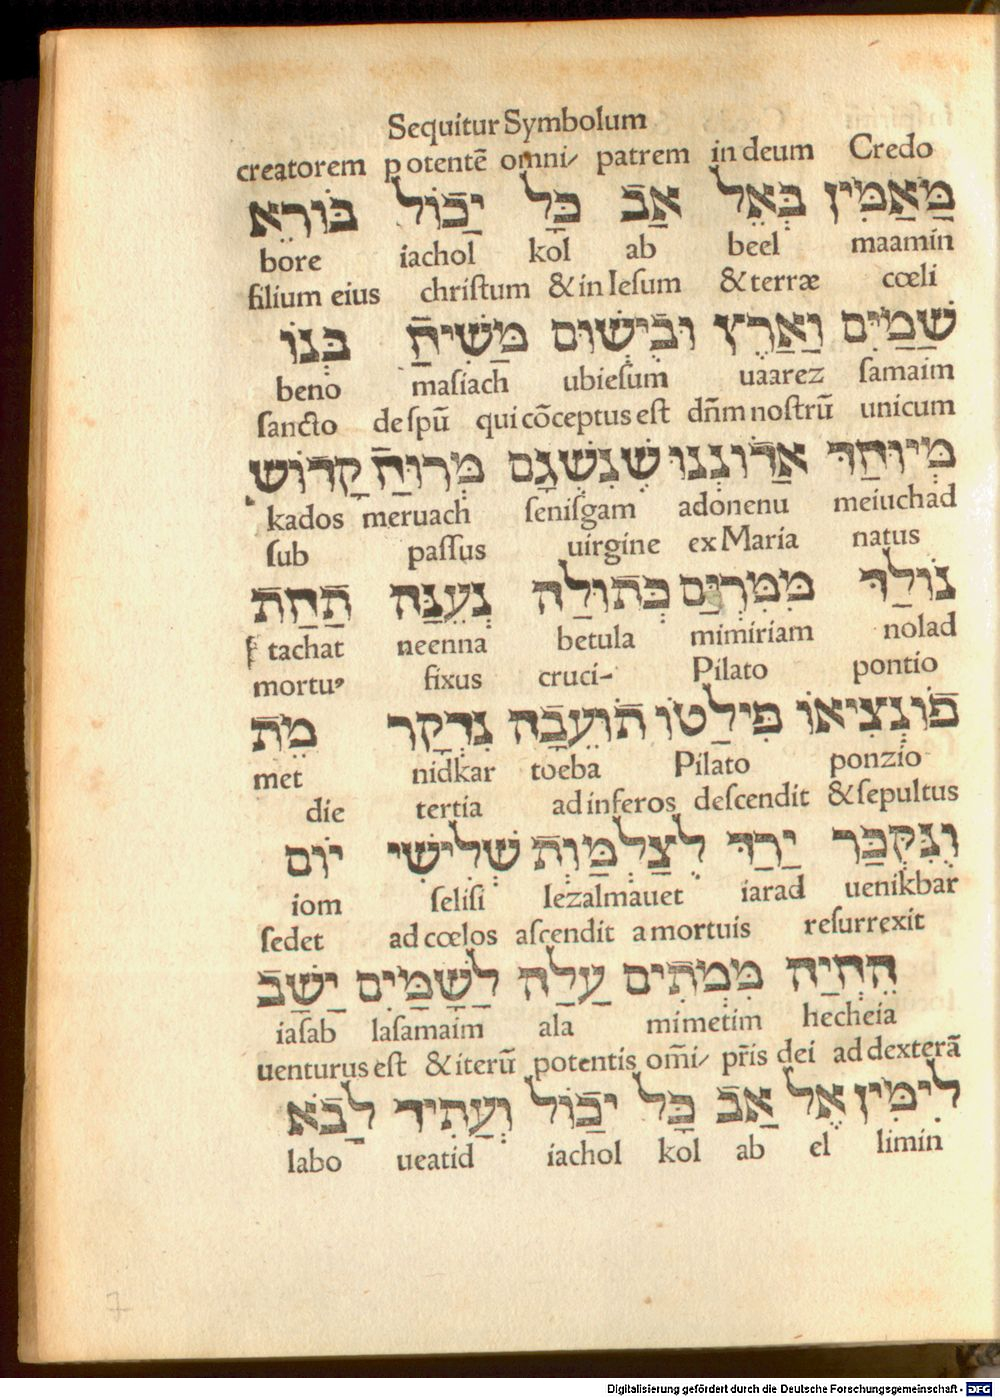 Sequitur Symbolum
creatorem potentē omni/ patrem in deum Credo
מַאַמִין בְּאֵל אַב כָּל יַכוֹל בּוֹרֵא
bore iachol kol ab beel maamin
filium eius christum & in Iesum & terræ cœli
שַׁמַיִם וַאַרֶץ וּבְיֵשׁוּם מַשִׁיחַ בְּנוֹ
beno masiach ubiesum uaarez samaim
sancto de spū qui cōceptus est dn̄m nostrū unicum
מְיוּחַד אַדוֹנֵנוּ שֶׁנִשְׁגָם מְרוּחַ קָדוֹשׁ
kados meruach senisgam adonenu meiuchad
sub passus uirgine ex Maria natus
נוֹלַד מִמִרְיַם בְּתוּלַה נְעֵנַּה תַחַת
tachat neenna betula mimiriam nolad
mortuꝰ fixus cruci- Pilato pontio
פוֹנְצִיאוֹ פִּילַטוֹ תוֹעֵבָה נִדְקָר מֵת
met nidkar toeba Pilato ponzio
die tertia ad inferos descendit & sepultus
וְנִקְבַּר יַרַד לְצַלְמַוֶת שְׁלִישִׁי יוֹם
iom selisi lezalmauet iarad uenikbar
sedet ad cœlos ascendit a mortuis resurrexit
הֶחְיַה מִמְתִים עַלַה לַשָׁמַיִם יַשַׁב
iasab lasamaim ala mimetim hecheia
uenturus est & iterū potentis om̄i/ pr̄is dei ad dexterā
לִימִין אֶל אַב כָּל יַכוֹל וְעַתִיד לַבֹא
labo ueatid iachol kol ab el limin
7
Digitalisierung gefördert durch die Deutsche Forschungsgemeinschaft - DFG